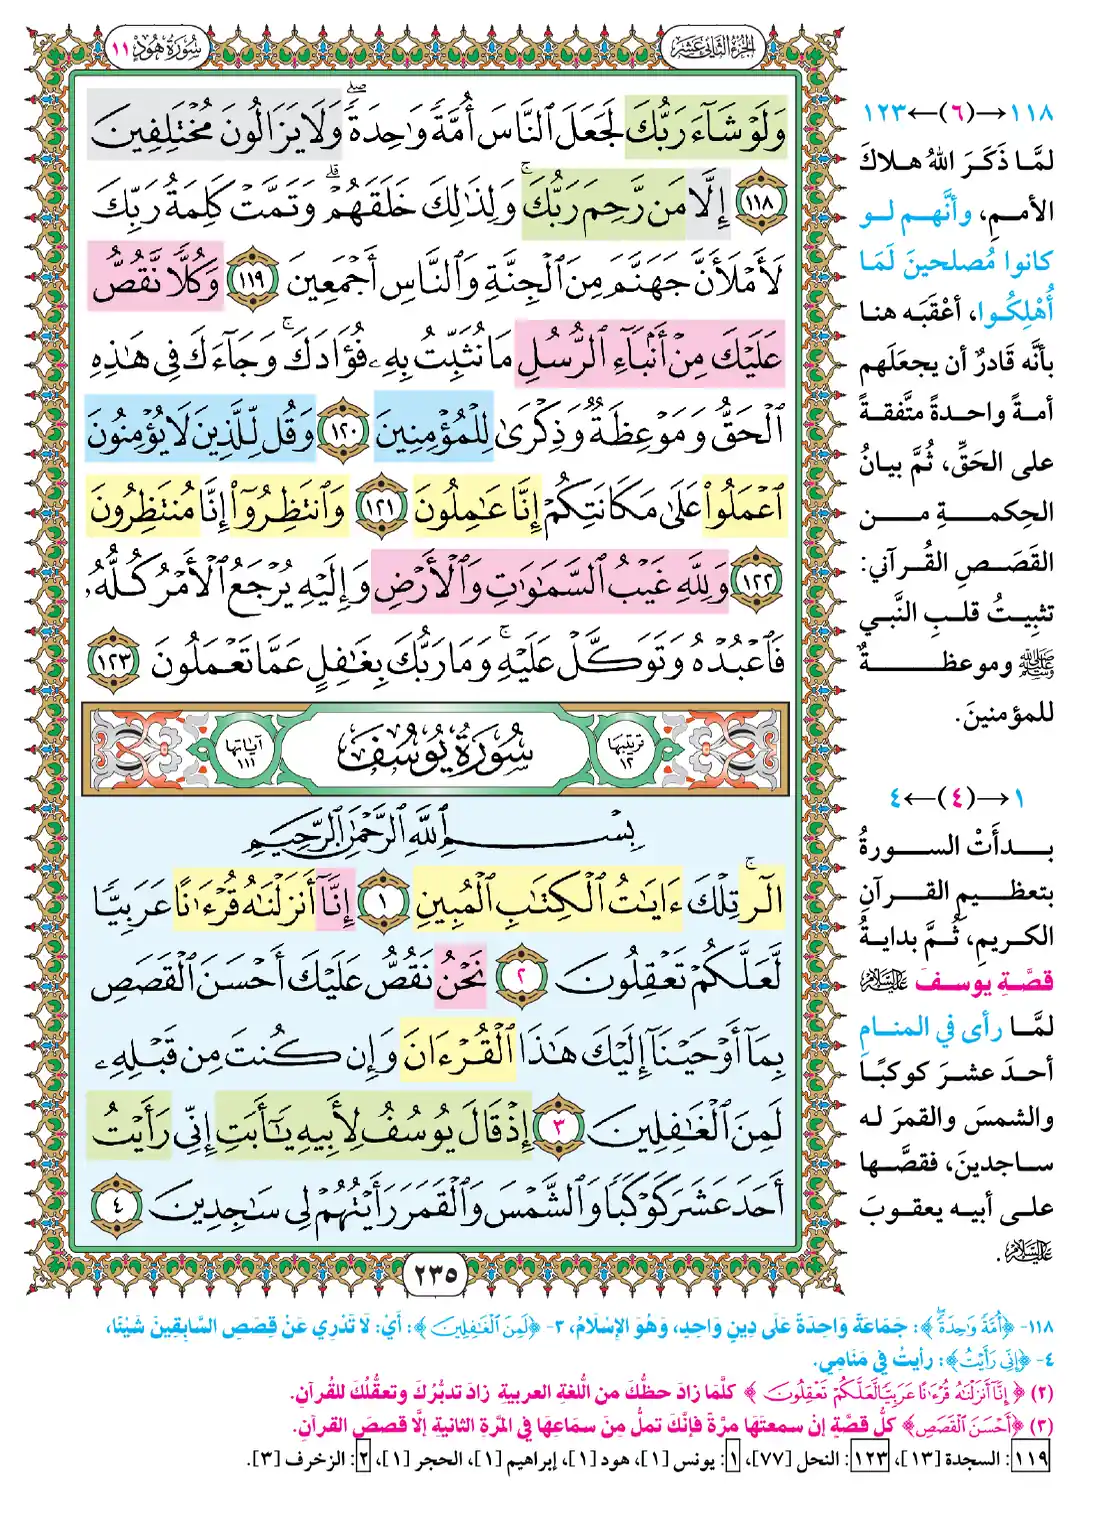 الجزء الثاني عشر
سورة هود ١١
وَلَوْ شَآءَ رَبُّكَ لَجَعَلَ ٱلنَّاسَ أُمَّةً وَٰحِدَةً ۖ وَلَا يَزَالُونَ مُخْتَلِفِينَ
١١٨ إِلَّا مَن رَّحِمَ رَبُّكَ ۚ وَلِذَٰلِكَ خَلَقَهُمْ ۗ وَتَمَّتْ كَلِمَةُ رَبِّكَ
لَأَمْلَأَنَّ جَهَنَّمَ مِنَ ٱلْجِنَّةِ وَٱلنَّاسِ أَجْمَعِينَ ١١٩ وَكُلًّا نَّقُصُّ
عَلَيْكَ مِنْ أَنۢبَآءِ ٱلرُّسُلِ مَا نُثَبِّتُ بِهِۦ فُؤَادَكَ ۚ وَجَآءَكَ فِى هَٰذِهِ
ٱلْحَقُّ وَمَوْعِظَةٌ وَذِكْرَىٰ لِلْمُؤْمِنِينَ ١٢٠ وَقُل لِّلَّذِينَ لَا يُؤْمِنُونَ
ٱعْمَلُوا۟ عَلَىٰ مَكَانَتِكُمْ إِنَّا عَٰمِلُونَ ١٢١ وَٱنتَظِرُوٓا۟ إِنَّا مُنتَظِرُونَ
١٢٢ وَلِلَّهِ غَيْبُ ٱلسَّمَٰوَٰتِ وَٱلْأَرْضِ وَإِلَيْهِ يُرْجَعُ ٱلْأَمْرُ كُلُّهُۥ
فَٱعْبُدْهُ وَتَوَكَّلْ عَلَيْهِ ۚ وَمَا رَبُّكَ بِغَٰفِلٍ عَمَّا تَعْمَلُونَ ١٢٣
ترتيبها ١٢
سُورَةُ يُوسُفَ
آياتها ١١١
بِسْمِ ٱللَّهِ ٱلرَّحْمَٰنِ ٱلرَّحِيمِ
الٓر ۚ تِلْكَ ءَايَٰتُ ٱلْكِتَٰبِ ٱلْمُبِينِ ١ إِنَّآ أَنزَلْنَٰهُ قُرْءَٰنًا عَرَبِيًّا
لَّعَلَّكُمْ تَعْقِلُونَ ٢ نَحْنُ نَقُصُّ عَلَيْكَ أَحْسَنَ ٱلْقَصَصِ
بِمَآ أَوْحَيْنَآ إِلَيْكَ هَٰذَا ٱلْقُرْءَانَ وَإِن كُنتَ مِن قَبْلِهِۦ
لَمِنَ ٱلْغَٰفِلِينَ ٣ إِذْ قَالَ يُوسُفُ لِأَبِيهِ يَٰٓأَبَتِ إِنِّى رَأَيْتُ
أَحَدَ عَشَرَ كَوْكَبًا وَٱلشَّمْسَ وَٱلْقَمَرَ رَأَيْتُهُمْ لِى سَٰجِدِينَ ٤
٢٣٥
١١٨→(٦)←١٢٣
لمَّا ذَكَرَ اللهُ هلاكَ
الأممِ، وأنَّهم لو
كانوا مُصلحينَ لَمَا
أُهْلِكُوا، أعْقَبَه هنا
بأنَّه قَادرٌ أن يجعلَهم
أمةً واحدةً متَّفقةً
على الحَقِّ، ثُمَّ بيانُ
الحِكمةِ من
القَصَصِ القُرآني:
تثبِيتُ قلبِ النَّبي
ﷺ وموعظةٌ
للمؤمنينَ.
١→(٤)←٤
بدأَتْ السورةُ
بتعظيمِ القرآنِ
الكريمِ، ثُمَّ بدايةُ
قصَّةِ يوسفَ عليه السلام
لمَّا رأى في المنامِ
أحدَ عشرَ كوكبًا
والشمسَ والقمرَ له
ساجدينَ، فقصَّها
على أبيه يعقوبَ
عليه السلام.
١١٨- ﴿أُمَّةً وَٰحِدَةً﴾: جَمَاعَةً وَاحِدَةً عَلَى دِينٍ وَاحِدٍ، وَهُوَ الإِسْلَامُ، ٣- ﴿لَمِنَ ٱلْغَٰفِلِينَ﴾: أَيْ: لَا تَدْرِي عَنْ قِصَصِ السَّابِقِينَ شَيْئًا،
٤- ﴿إِنِّى رَأَيْتُ﴾: رأيتُ فِي مَنَامِي.
(٢) ﴿إِنَّآ أَنزَلْنَٰهُ قُرْءَٰنًا عَرَبِيًّا لَّعَلَّكُمْ تَعْقِلُونَ﴾ كلَّمَا زادَ حظُّكَ من اللغةِ العربيةِ زادَ تدبُّرُكَ وتعقُّلُكَ للقُرآنِ.
(٣) ﴿أَحْسَنَ ٱلْقَصَصِ﴾ كلُّ قصَّةٍ إنْ سمعتَهَا مرَّةً فإنَّكَ تملُّ مِنَ سمَاعِهَا فِي المَرَّةِ الثانيةِ إلَّا قصصَ القرآنِ.
١١٩: السجدة [١٣]، ١٢٣: النحل [٧٧]، ١: يونس [١]، هود [١]، إبراهيم [١]، الحجر [١]، ٢: الزخرف [٣].